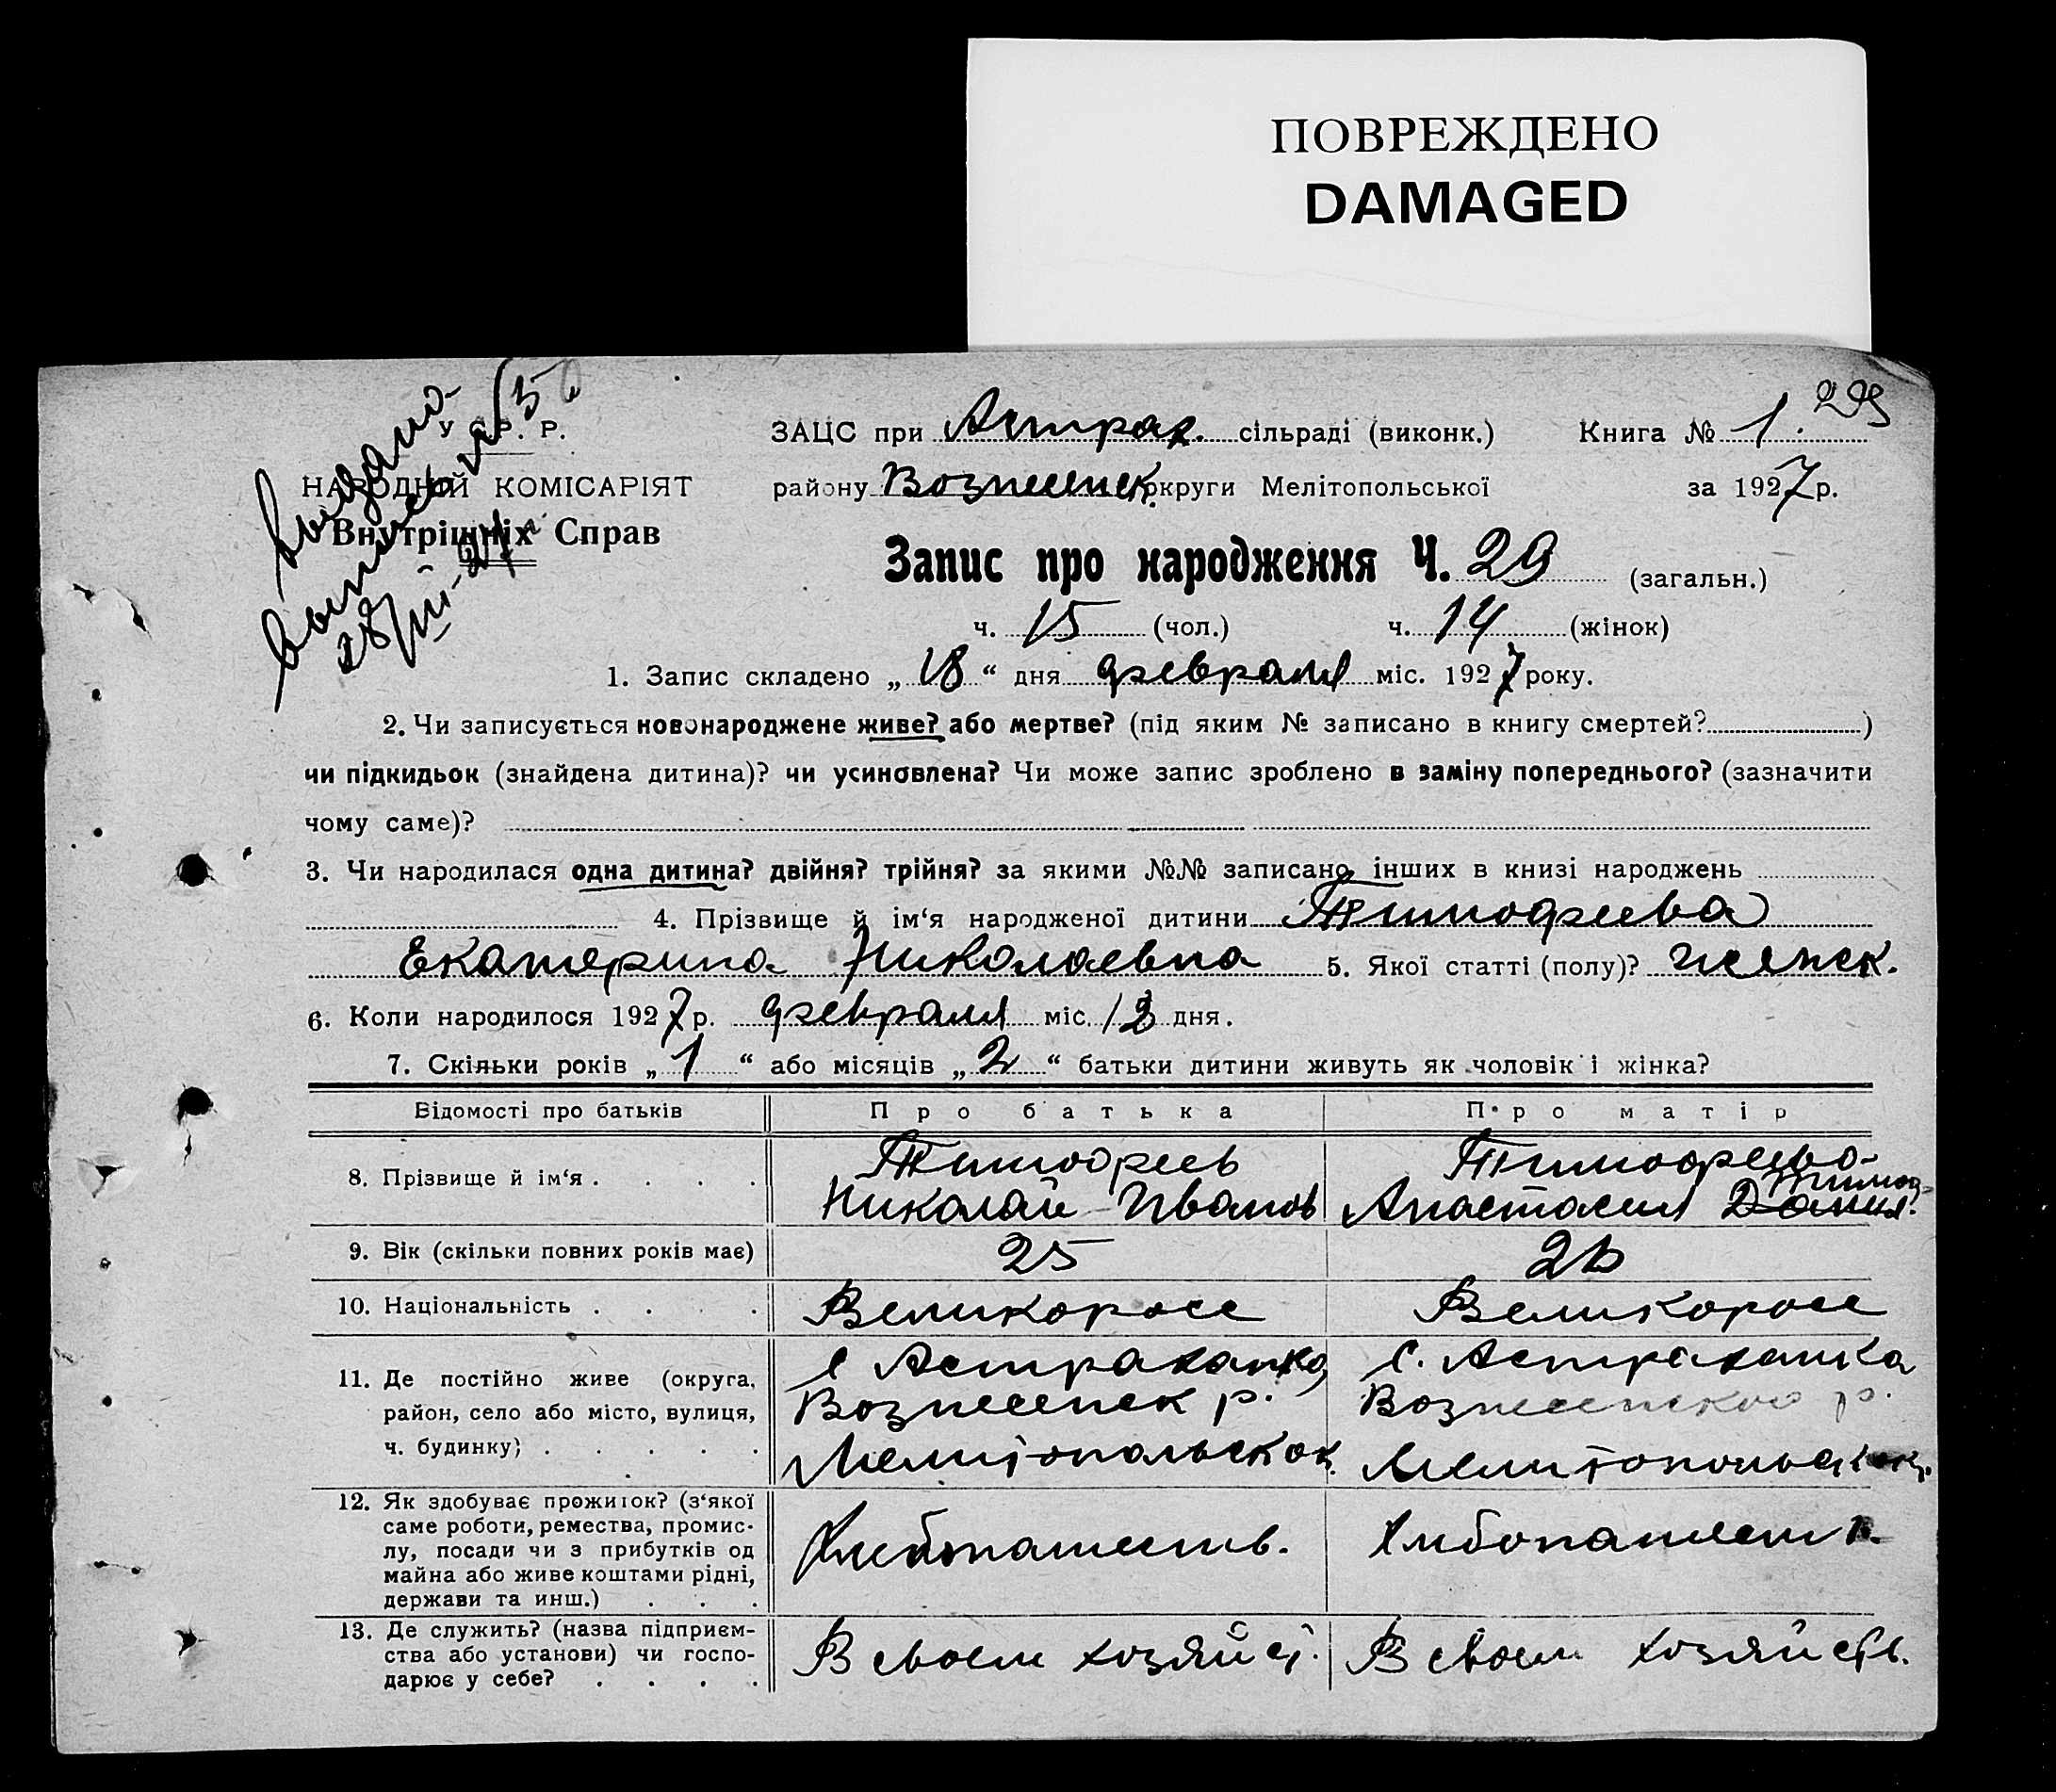 ПОВРЕЖДЕНО
DAMAGED
Выдано
выпись
28/III-24
У.С.Р.Р.
НАРОДНІЙ КОМІСАРІЯТ
Внутрішніх Справ
ЗАЦС при Астрах. сільраді (виконк.) Книга № 1.
району Вознесенск. округи Мелітопольської за 1927 р.
Запис про народження Ч. 29 (загальн.)
ч. 15 (чол.) ч. 14 (жінок)
1. Запис складено „18“ дня февраля міс. 1927 року.
2. Чи записується новонароджене живе? або мертве? (під яким № записано в книгу смертей? )
чи підкидьок (знайдена дитина)? чи усиновлена? Чи може запис зроблено в заміну попереднього? (зазначити
чому саме)?
3. Чи народилася одна дитина? двійня? трійня? за якими №№ записано інших в книзі народжень
4. Прізвище й ім‘я народженої дитини Тимофеева
Екатерина Николаевна 5. Якої статті (полу)? женск.
6. Коли народилося 1927 р. февраля міс. 13 дня.
7. Скільки років „1“ або місяців „2“ батьки дитини живуть як чоловік і жінка?
Відомості про батьків Про батька Про матір
8. Прізвище й ім‘я . . . . Тимофеев Николай Иванов Тимофеева Анастасия Данил. Тимоф-
9. Вік (скільки повних років має) 25 26
10. Національність . . . . Великоросс Великоросс
11. Де постійно живе (округа, район, село або місто, вулиця, ч. будинку) . . . . . с Астраханка, Вознесенск р. Мелитопольск ок. с. Астраханка Вознесенского р. Мелитопольск ок.
12. Як здобуває прожиток? (з‘якої саме роботи, ремества, промислу, посади чи з прибутків од майна або живе коштами рідні, держави та инш.) . . . Хлебопашеств. Хлебопашеств.
13. Де служить? (назва підприємства або установи) чи господарює у себе? . . . . В своем хозяйст. В своем хозяйств.